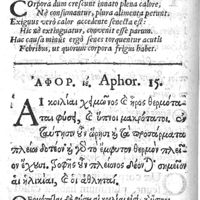 Corpora dum crescunt innato plena calore,
Ne consumantur, plura alimenta petunt.
Exiguus verò calor accedente senecta est:
Hic ne extinguatur, convenit esse parum.
Hac causa minùs ergò senes torquentur acutis
Febribus, ut quorum corpora frigus habet.
ΑΦΟΡ. ιε. Aphor. 15.
ΑΙ κοιλίαι χειμῶνος καὶ ἦρος θερμόταται
φύσει, καὶ ὕπνοι μακρότατοι.
ταύτῃσιν ὥρῃσι καὶ τὰ προσάρματα
πλείω δοτέον καὶ γὸ τὸ ἔμφυτον θερμὸν πλεῖον
ἔχουσι, τροφῆς πλείονος δέονται σημεῖον
αἱ ἡλικίαι, καὶ οἱ ἀθληταί.